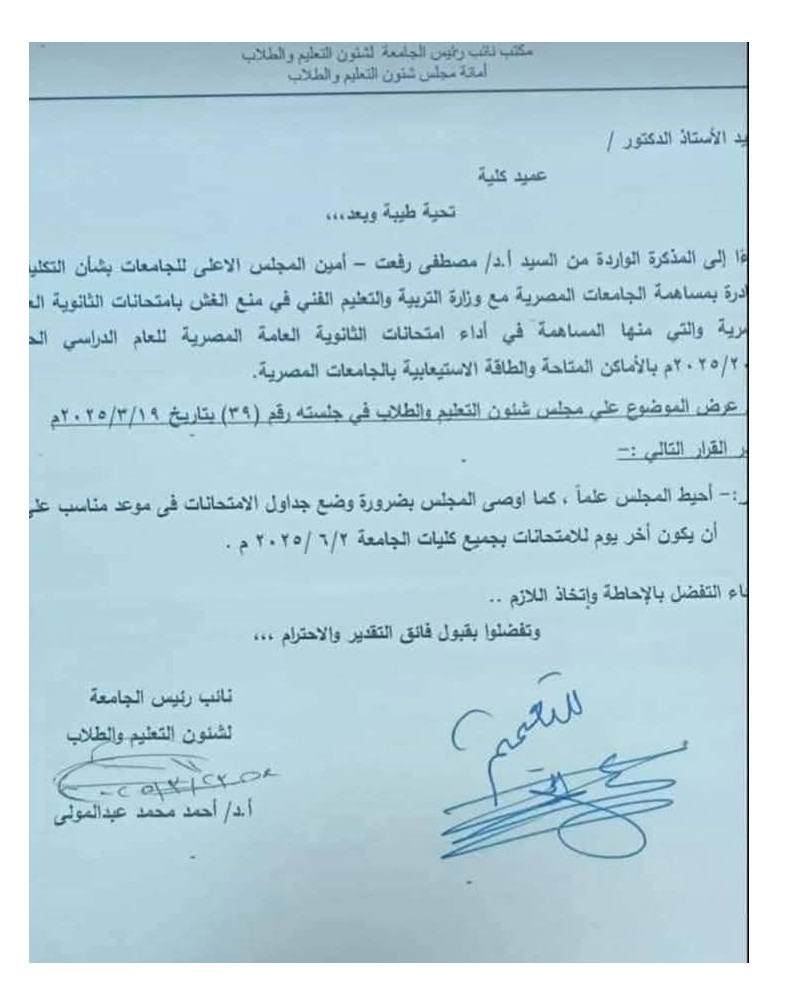 مكتب نائب رئيس الجامعة لشئون التعليم والطلاب
أمانة مجلس شئون التعليم والطلاب
يد الأستاذ الدكتور /
عميد كلية
تحية طيبة وبعد،،،
ءًا إلى المذكرة الواردة من السيد أ.د/ مصطفى رفعت – أمين المجلس الاعلى للجامعات بشأن التكلي
ادرة بمساهمة الجامعات المصرية مع وزارة التربية والتعليم الفني في منع الغش بامتحانات الثانوية الع
رية والتي منها المساهمة في أداء امتحانات الثانوية العامة المصرية للعام الدراسي الح
٢٠٢٥/٢٠م بالأماكن المتاحة والطاقة الاستيعابية بالجامعات المصرية.
عرض الموضوع علي مجلس شئون التعليم والطلاب في جلسته رقم (٣٩) بتاريخ ٢٠٢٥/٣/١٩م
ر القرار التالي :–
ر:– أحيط المجلس علماً ، كما اوصى المجلس بضرورة وضع جداول الامتحانات فى موعد مناسب على
أن يكون أخر يوم للامتحانات بجميع كليات الجامعة ٢٠٢٥/٦/٢ م .
اء التفضل بالإحاطة وإتخاذ اللازم ..
وتفضلوا بقبول فائق التقدير والاحترام ،،،
نائب رئيس الجامعة
لشئون التعليم والطلاب
أ.د/ أحمد محمد عبدالمولى